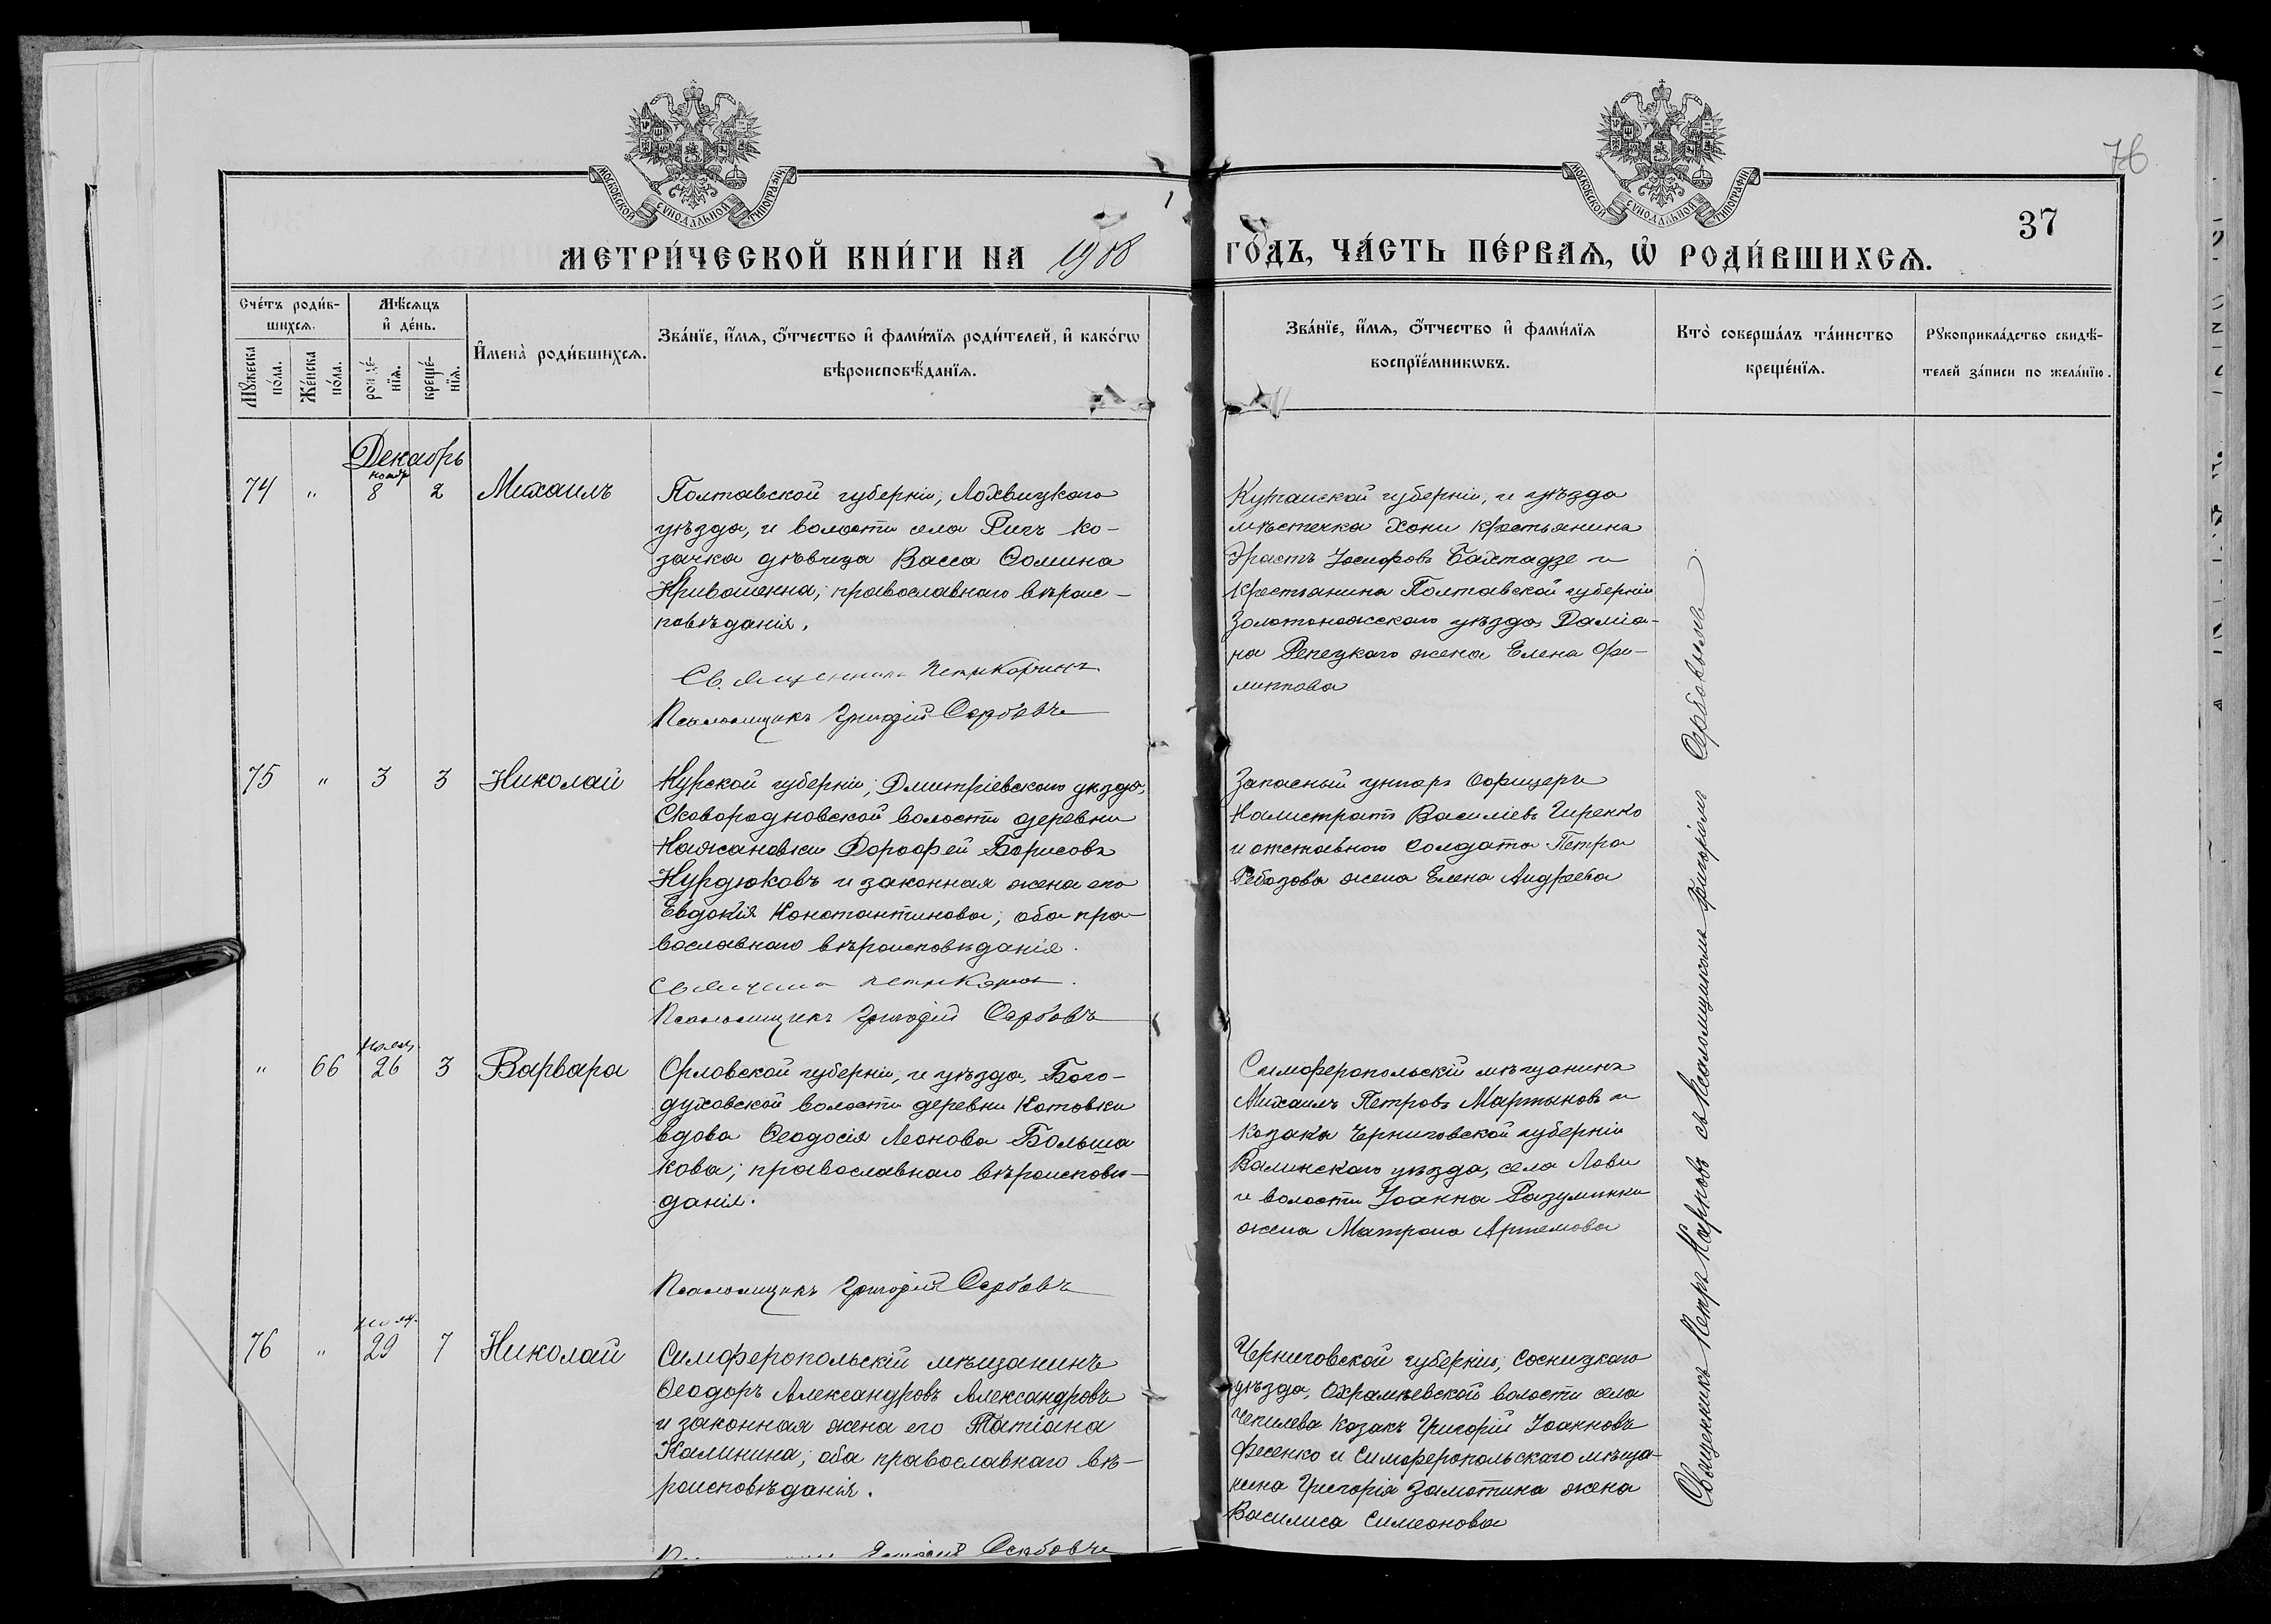 МОСКОВСКОЙ СУНОДАЛЬНОЙ ТИПОГРАФІИ
МОСКОВСКОЙ СУНОДАЛЬНОЙ ТИПОГРАФІИ
76
37
МЕТРИ́ЧЕСКОЙ КНИ́ГИ НА 1908 ГО́ДЪ, ЧА́СТЬ ПЕ́РВАѦ, Ѡ҆ РОДИ́ВШИХСѦ.
Сче́тъ роди́в-
шихсѧ.
Мѣ́сѧцъ
и҆ де́нь.
Мꙋ́жеска
по́ла.
Же́нска
по́ла.
рожде́-
нїѧ.
креще́-
нїѧ.
И҆мена̀ роди́вшихсѧ.
Зва́нїе, и҆́мѧ, ѻ҆́тчество и҆ фами́лїѧ роди́телей, и҆ како́гѡ
вѣроисповѣ́данїѧ.
Зва́нїе, и҆́мѧ, ѻ҆́тчество и҆ фами́лїѧ
воспрїе́мникѡвъ.
Кто̀ соверша́лъ та́инство
креще́нїѧ.
Рꙋкоприкла́дство свидѣ́-
телей за́писи по жела́нїю.
Декабрь
74 " 8 2 Михаилъ
Полтавской губерніи, Лохвицкаго
уѣзда, и волости села Ригъ ко-
зачка дѣвица Васса Ѳомина
Кривошенна; православнаго вѣроис-
повѣданія.
Псаломщикъ Григорій Сербовъ
Кутаиской губерніи, и уѣзда
мѣстечка Хони крестьянина
Эрастъ Іосифовъ Бахтадзе и
крестьянина Полтавской губерніи
Золотоножскаго уѣзда, Даміа-
на Репецкаго жена Елена Фи-
липпова
75 " 3 3 Николай
Курской губерніи, Дмитріевскаго уѣзда,
Сковородновской волости деревни
Кожановки Дороѳей Борисовъ
Курдюковъ и законная жена его
Евдокія Константинова; оба пра-
вославнаго вѣроисповѣданія.
Псаломщикъ Григорій Сербовъ
Запасный унтеръ Офицеръ
Калистратъ Василіевъ Гиренко
и отставного солдата Петра
Ребазова жена Елена Андреева
" 66 26 3 Варвара
Орловской губерніи, и уѣзда, Бого-
духовской волости деревни Котовки
вдова Ѳеодосія Леонова Больша
кова; православнаго вѣроисповѣ-
данія.
Псаломщикъ Григорій Сербовъ
Симферопольскій мѣщанинъ
Михаилъ Петровъ Мартыновъ и
козака Черниговской губерніи
села Лови
и волости Іоанна Разуминки
жена Матрона Артемова
76 " 29 7 Николай
Симферопольскій мѣщанинъ
Ѳеодоръ Александровъ Александровъ
и законная жена его Татіана
Калинина; оба православнаго вѣ-
роисповѣданія.
Черниговской губерніи, Сосницкаго
уѣзда, Охрамѣевской волости села
Чепилева козакъ Григорій Іоанновъ
Фесенко и Симферопольскаго мѣща-
нина Григорія Замотина жена
Василиса Симеонова
Священникъ Петръ Карповъ съ Псаломщикомъ Григоріемъ Сербовымъ